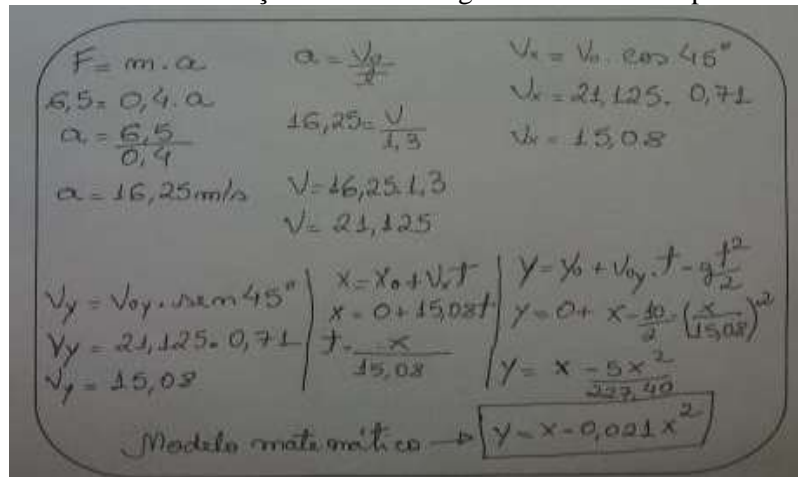 F = m.a
6,5 = 0,4.a
a = 6,5/0,4
a = 16,25 m/s
16,25 = V/1,3
V = 16,25.1,3
V = 21,125
Vx = V₀ . cos 45°
Vx = 21,125. 0,71
Vx = 15,08
Vy = Voy. sen 45°
Vy = 21,125. 0,71
Vy = 15,08
x = x₀ + Vxt
x = 0 + 15,08t
t = x/15,08
y = y₀ + Voy.t - gt²/2
y = 0 + x - 10/2 . (x/15,08)²
y = x - 5x²/227,40
Modelo matemático → y = x - 0,021x²